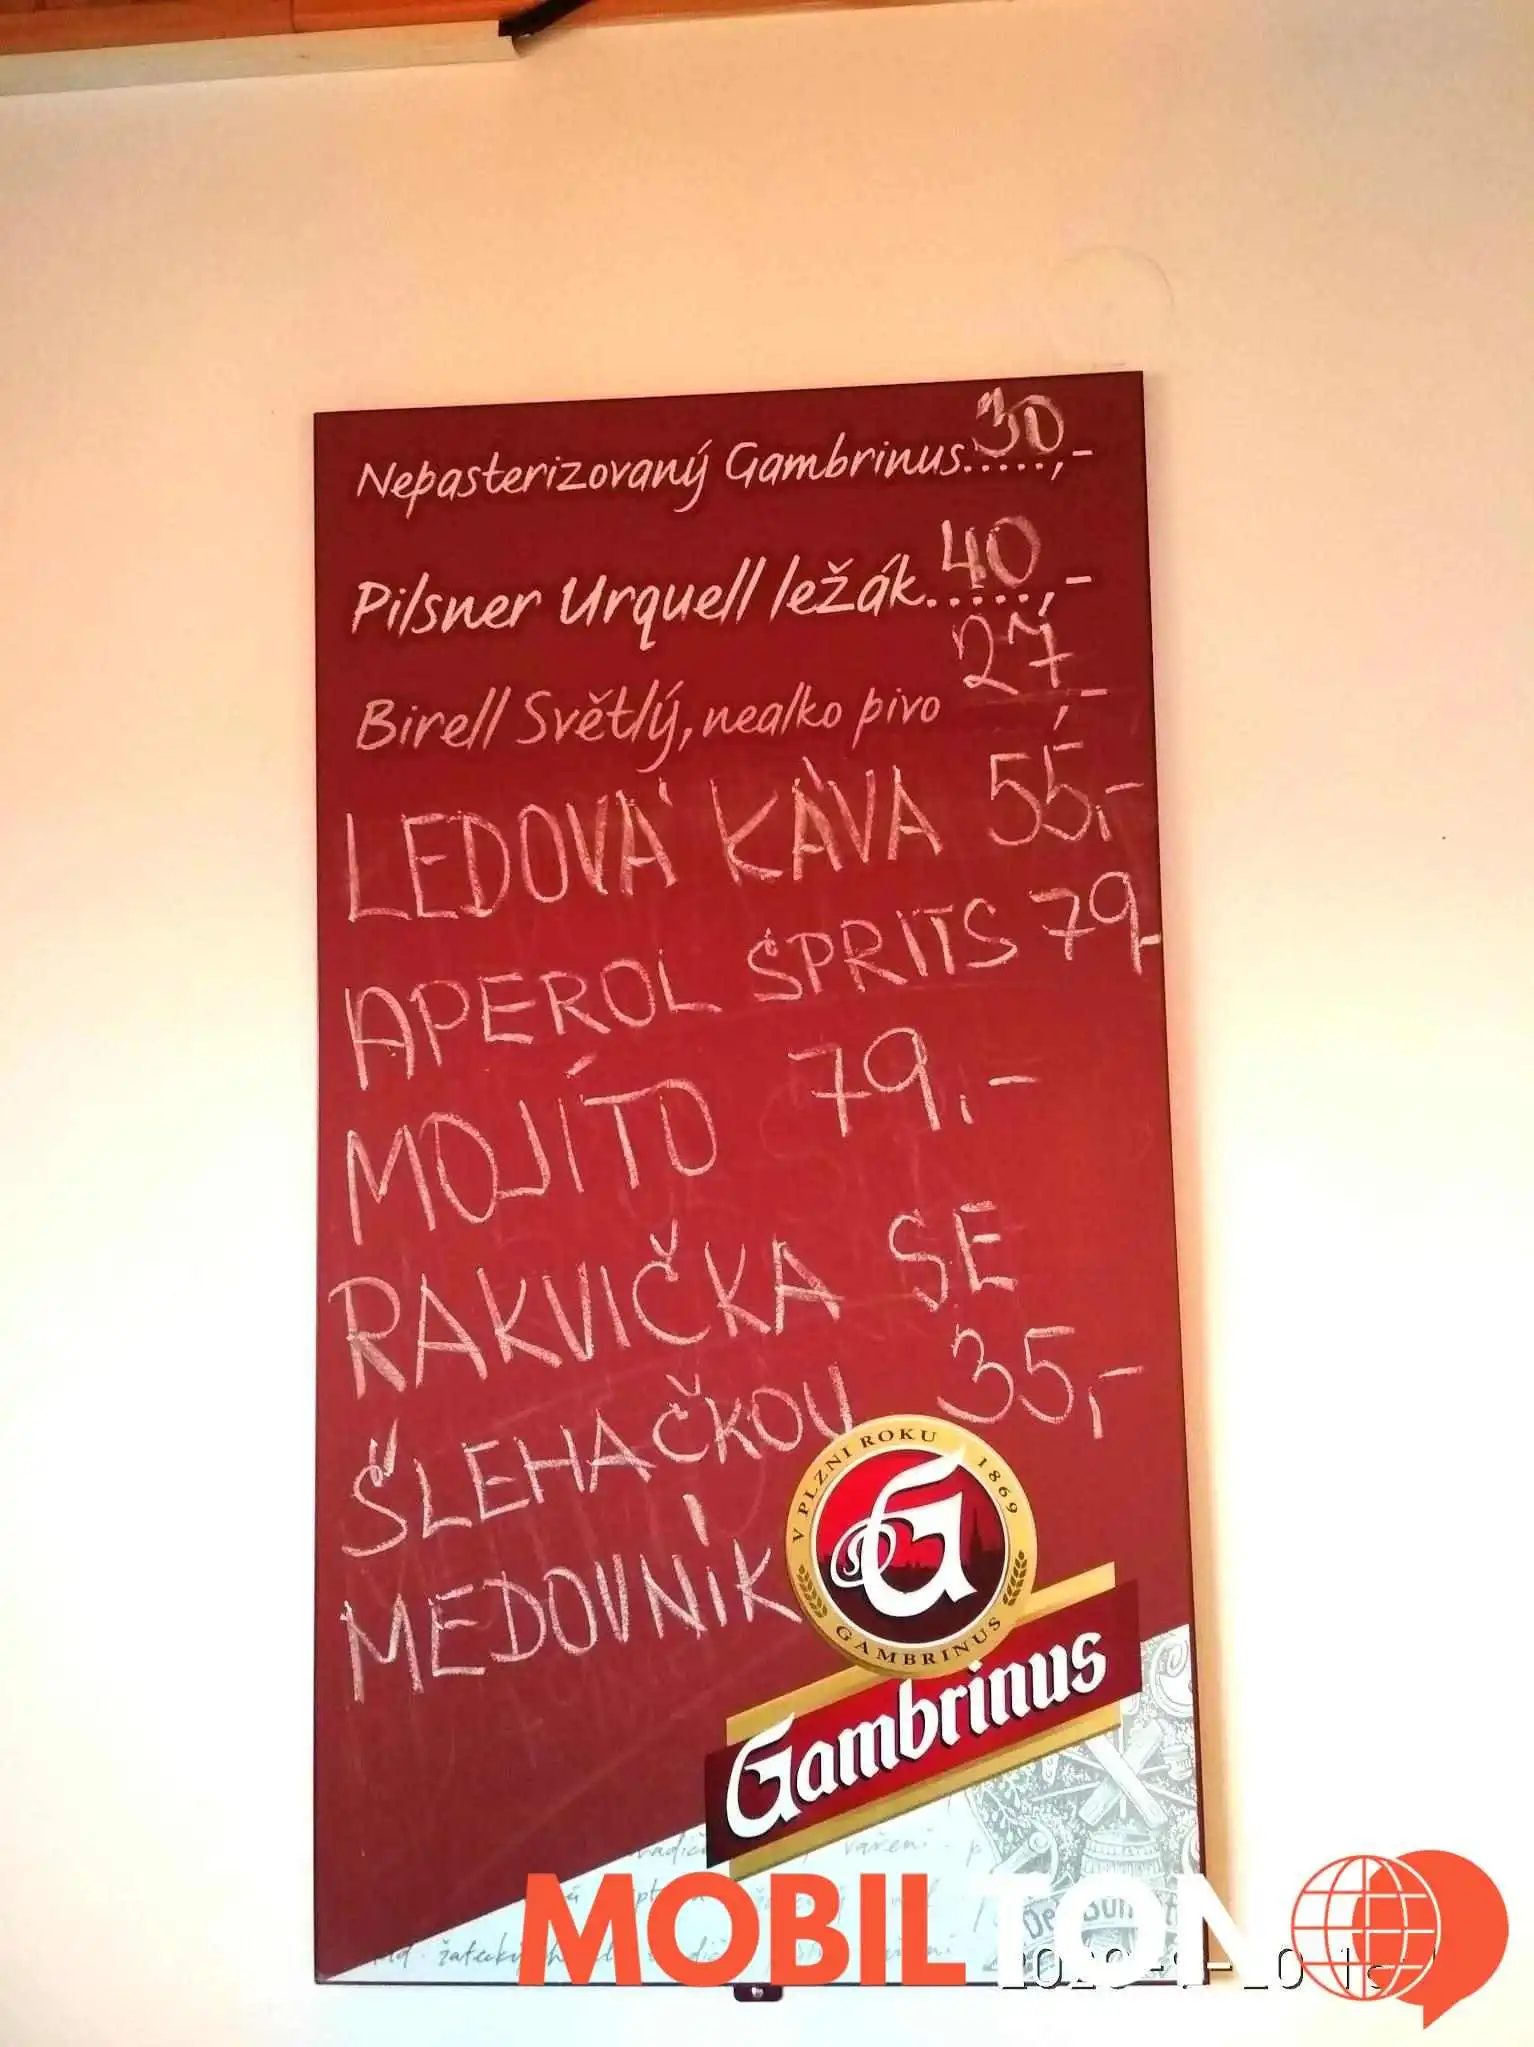 Nepasterizovaný Gambrinus.....,- 30
Pilsner Urquell ležák.....,- 40
Birell Světlý, nealko pivo 27,-
LEDOVÁ KÁVA 55,-
APEROL SPRITS 79,-
MOJÍTO 79,-
RAKVIČKA SE
ŠLEHAČKOU 35,-
MEDOVNÍK
V PLZNI ROKU 1869
G
GAMBRINUS
Gambrinus
vaření
MOBILTON